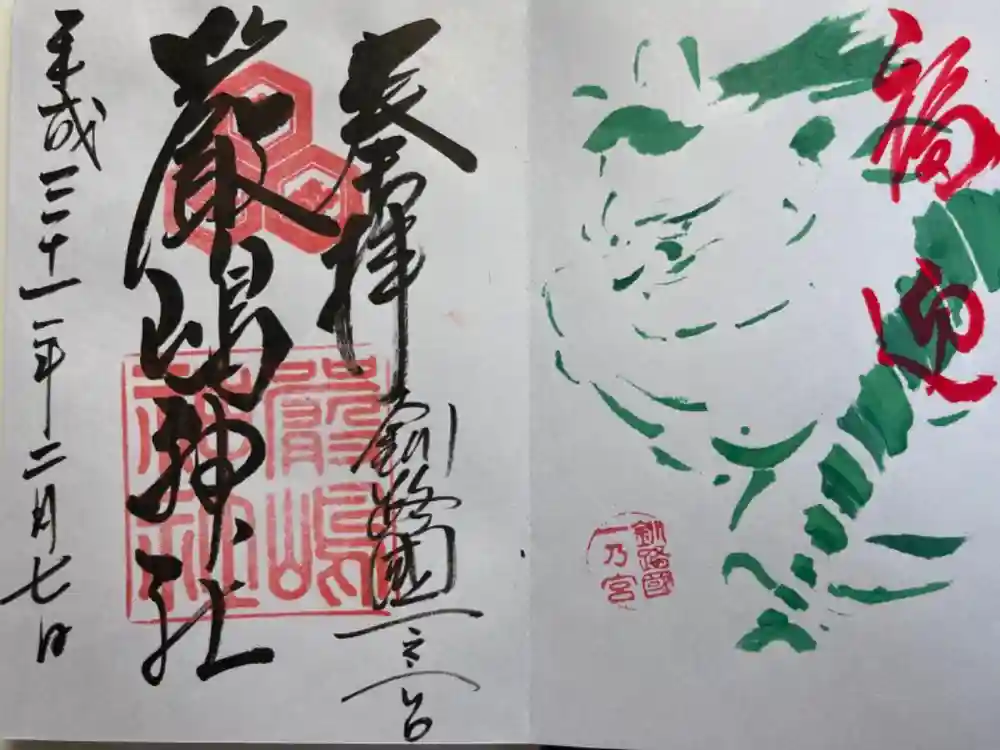 福迎
釧路國
一乃宮
奉拝
釧路國一之宮
厳嶋神社
嚴嶋
神社
平成三十一年二月七日